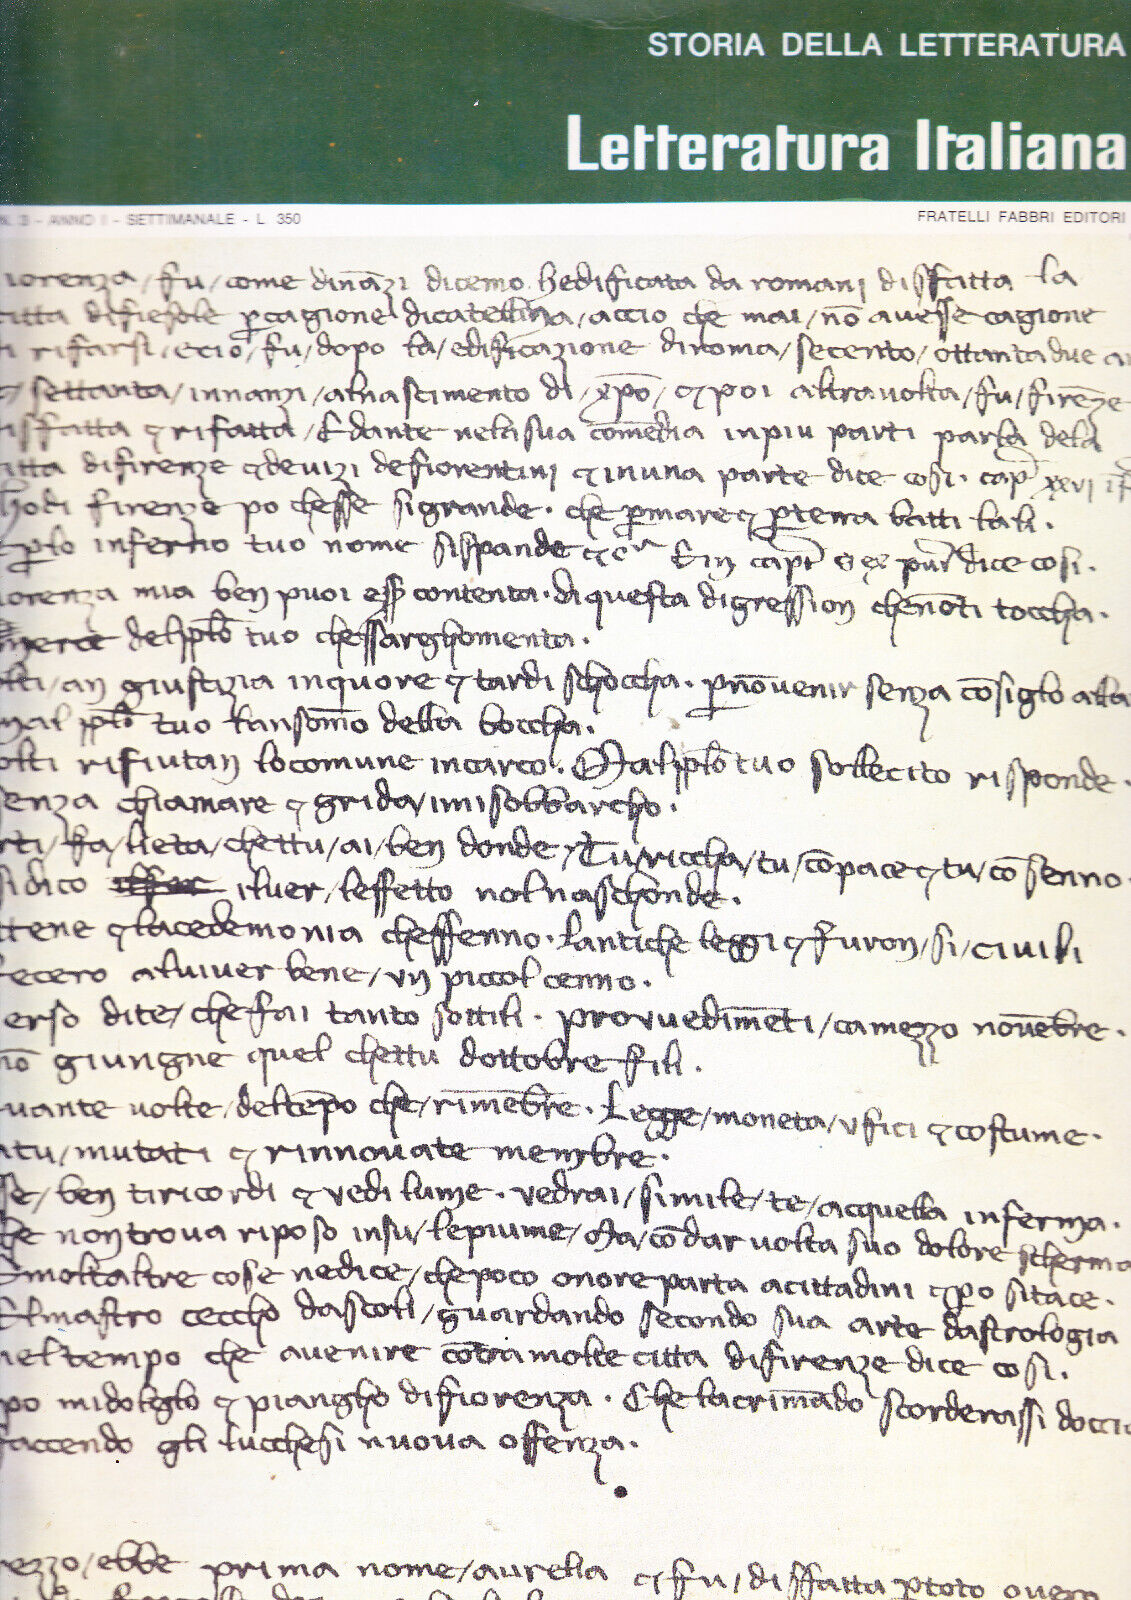 STORIA DELLA LETTERATURA
Letteratura Italiana
N. 3 - ANNO II - SETTIMANALE - L. 350
FRATELLI FABBRI EDITORI
iorenza / fu / come dināzi dicemo hedificata da romani disffatta la
citta difiesole p̲cagione dicatellina / accio che mai / nō avesse cagione
di rifarsi / ecio / fu / dopo la / edificazione diroma / secento / ottantadue
settanta / innanzi / alnascimento di / xp̄o / ⁊ poi altravolta / fu / firēze
isffatta ⁊ rifatta / Edante nelasua comēdia inpiu parti parla dela
itta difirenze ⁊ devizi defiorentini ⁊ inuna parte dice cosi . cap̄ xxvi
hodi firenze po chesse sigrande . che p̲mare ⁊ p̲terra batti lali .
⁊ p̲lo inferno tuo nome sispande ⁊c̄ Ein cap̄ dice cosi .
iorenza mia ben puoi eēp contenta . diquesta digression chenōti toccha .
merce delpp̄lo tuo chessarghomenta .
olti / an giustizia inquore ⁊ tardi schoccha . p̲nōvenir senza cōsiglo alla
mal pp̄lo tuo lansōmo della boccha .
olti rifiutan locomune incarco . Malpp̄lo tuo sollecito risponde .
enza chiamare ⁊ grida / imisobbarcho .
rti / fa / lieta / chettu / ai / ben donde / Tu / riccha / tu / cōpace ⁊ tu / cō senno .
sidico iluer / leffetto nolnaschonde .
ttene ⁊ lacedemonia cheffenno . lantiche leggi ⁊ furon / si / civili
fecero alviver bene / vn piccol cenno .
erso dite / chefai tanto sottili . provvedimēti / camezzo novēbre .
nō giungne quel chettu dottobre fili .
uante volte / deltēpo che / rimēbre . Legge / moneta / vfici ⁊ costume .
atu / mutati ⁊ rinnovate membre .
se / ben tiricordi ⁊ vedi lume . vedrai / simile / te / acquella inferma .
he nontrova riposo insu / lepiume / Ma / cōdar volta suo dolore scherma
Emoltaltre cose nedice / chepoco onore parta acittadini ⁊ p̲o sitace .
Elmastro ceccho dascoli / guardando secondo sua arte dastrologia
neltempo che avenire cōtramolte citta difirenze dice cosi .
po midoleglo ⁊ piangho difiorenza . Che lacrimādo scorderassi doccio
faccendo gli lucchesi nuova offenza .
rezzo / ebbe prima nome / aurelia ⁊ fu / disffatta p̲toto overa